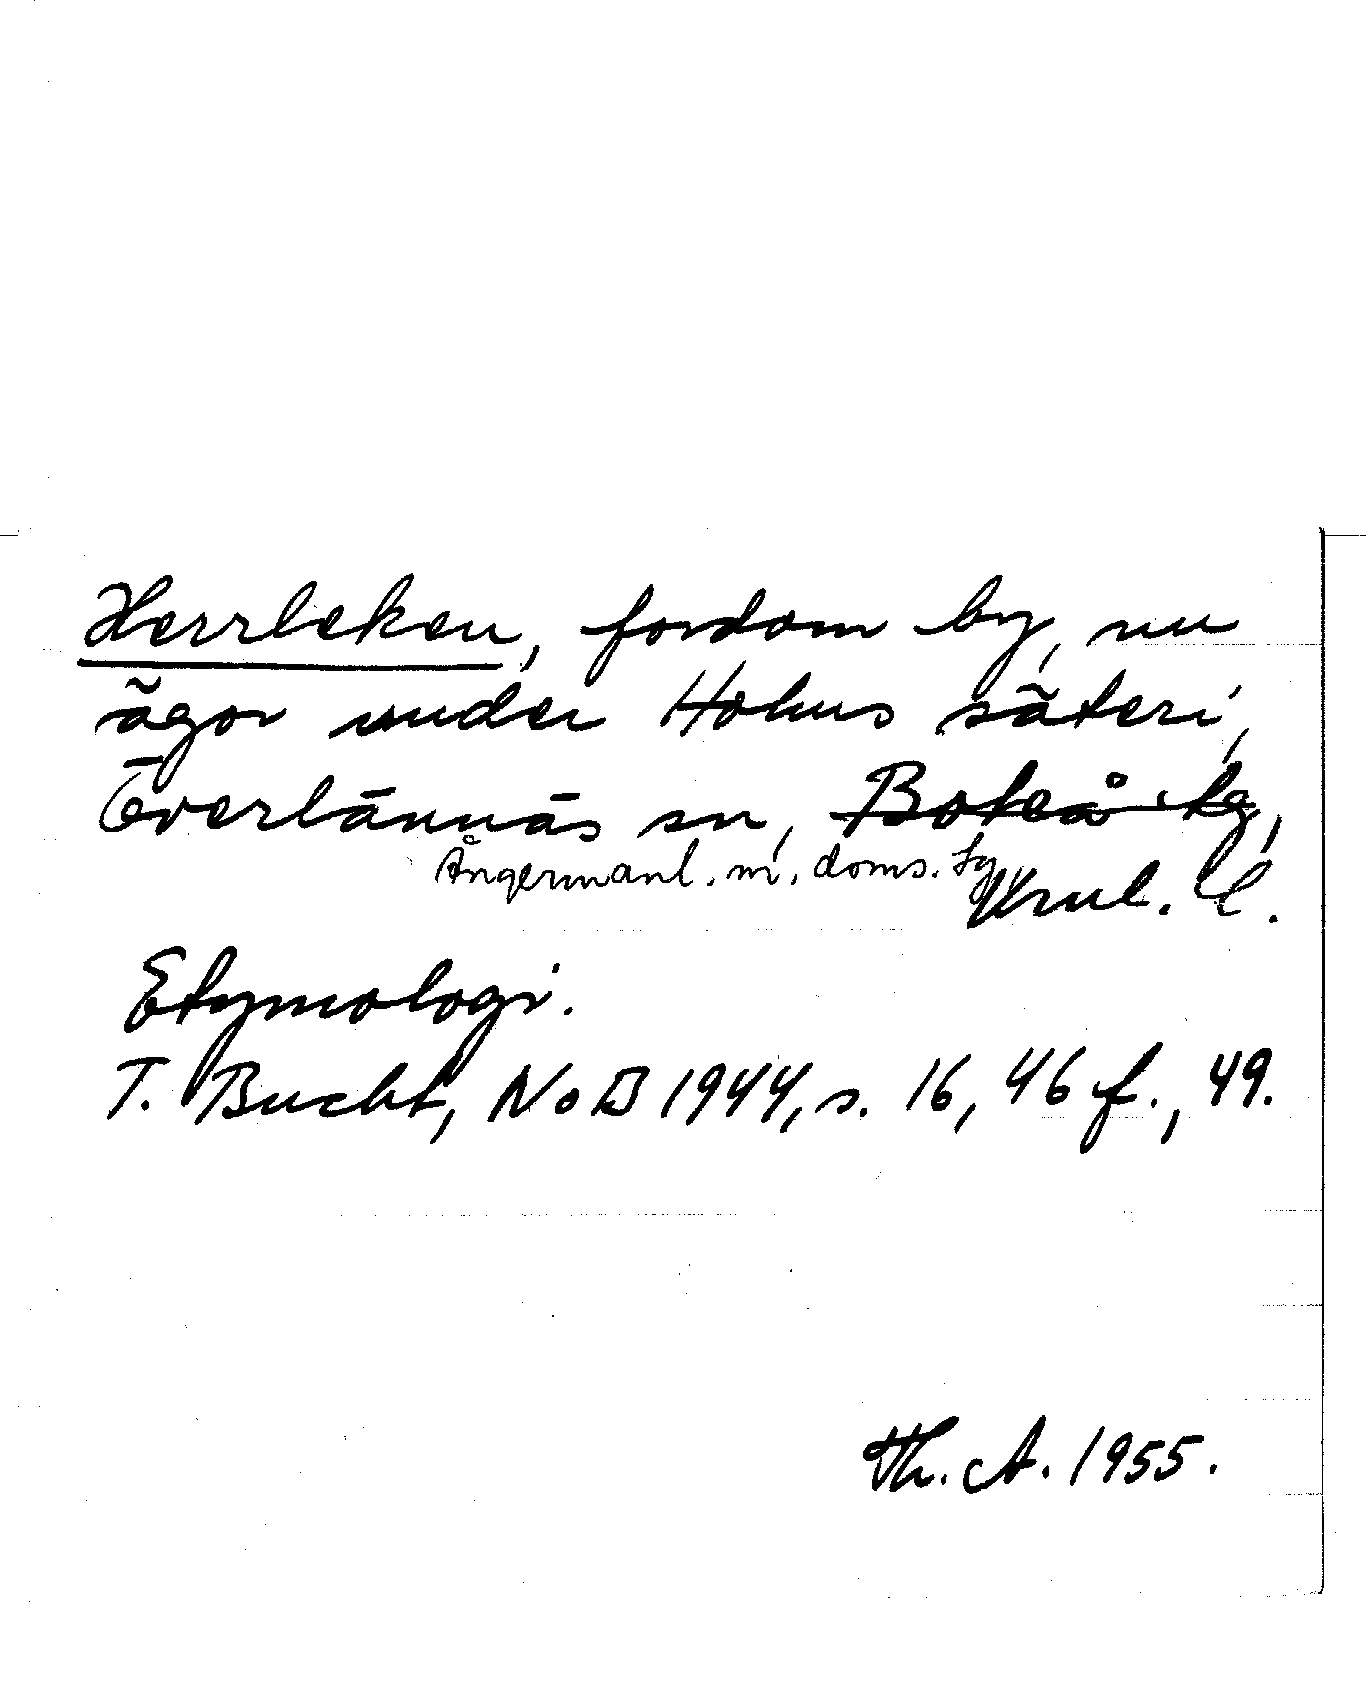 Herrleken, fordom by, nu
ägor under Holms säteri,
Överlännäs sn, Boteå tg,
Ångermanl. m. doms. tg
Vrnl. l.
Etymologi.
T. Bucht, NoB 1944, s. 16, 46 f., 49.
Th. A. 1955.